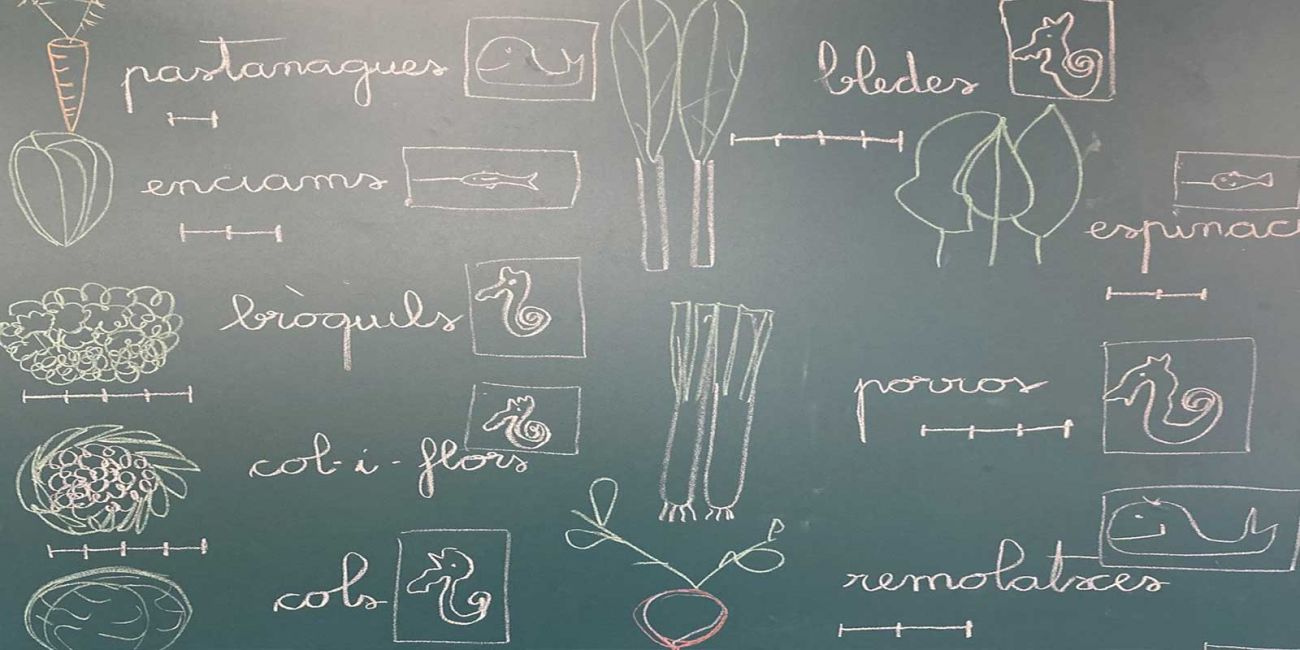 pastanagues
enciams
bròquils
col-i-flors
cols
bledes
espinac
porros
remolatxes